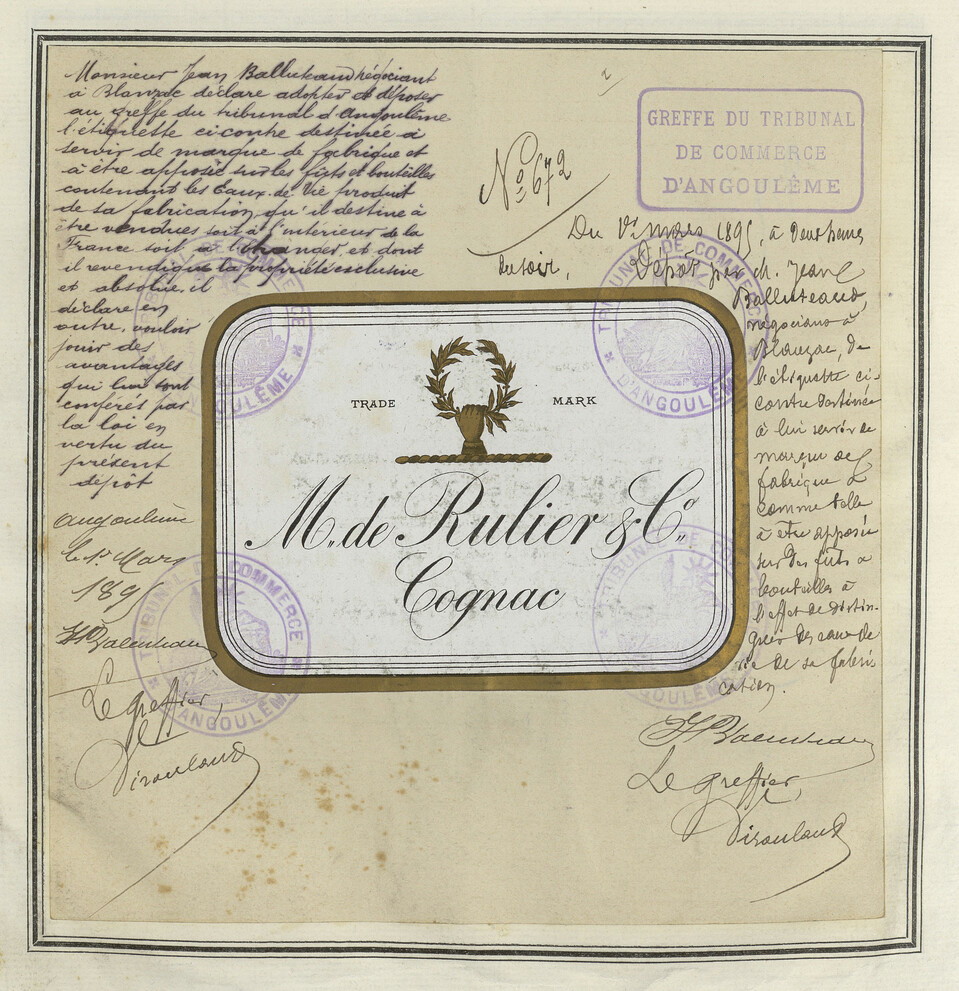 Monsieur Jean Balluteaud négociant
à Blanzac déclare adopter et déposer
au greffe du tribunal d'Angoulême
l'étiquette ci contre destinée à
servir de marque de fabrique et
à être apposée sur les fûts et bouteilles
contenant les Eaux-de-Vie produit
de sa fabrication qu'il destine à
être vendues soit à l'intérieur de la
France soit à l'étranger et dont
il revendique la propriété exclusive
et absolue, il
déclare en
outre, vouloir
jouir des
avantages
qui lui sont
conférés par
la loi en
vertu du
présent
dépôt
Angoulême
le 1er Mars
189
Le greffier,
GREFFE DU TRIBUNAL
DE COMMERCE
D'ANGOULÊME
No 672
Du 1er mars 1895, à deux heures
du soir, Dépôt par M. Jean
Balluteaud,
négociant à
Blanzac, de
l'étiquette ci-
contre destinée
à lui servir de
marque de
fabrique &
comme telle
à être apposée
sur des fûts &
bouteilles à
l'effet de distin-
guer des eaux de
vie de sa fabri
cation.
Le greffier,
TRADE MARK
M. de Rulier & Co.
Cognac
TRIBUNAL DE COMMERCE D'ANGOULÊME
TRIBUNAL DE COMMERCE D'ANGOULÊME
TRIBUNAL DE COMMERCE D'ANGOULÊME
TRIBUNAL DE COMMERCE D'ANGOULÊME